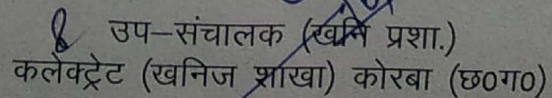 उप–संचालक (खनि प्रशा.)
कलेक्ट्रेट (खनिज शाखा) कोरबा (छ0ग0)